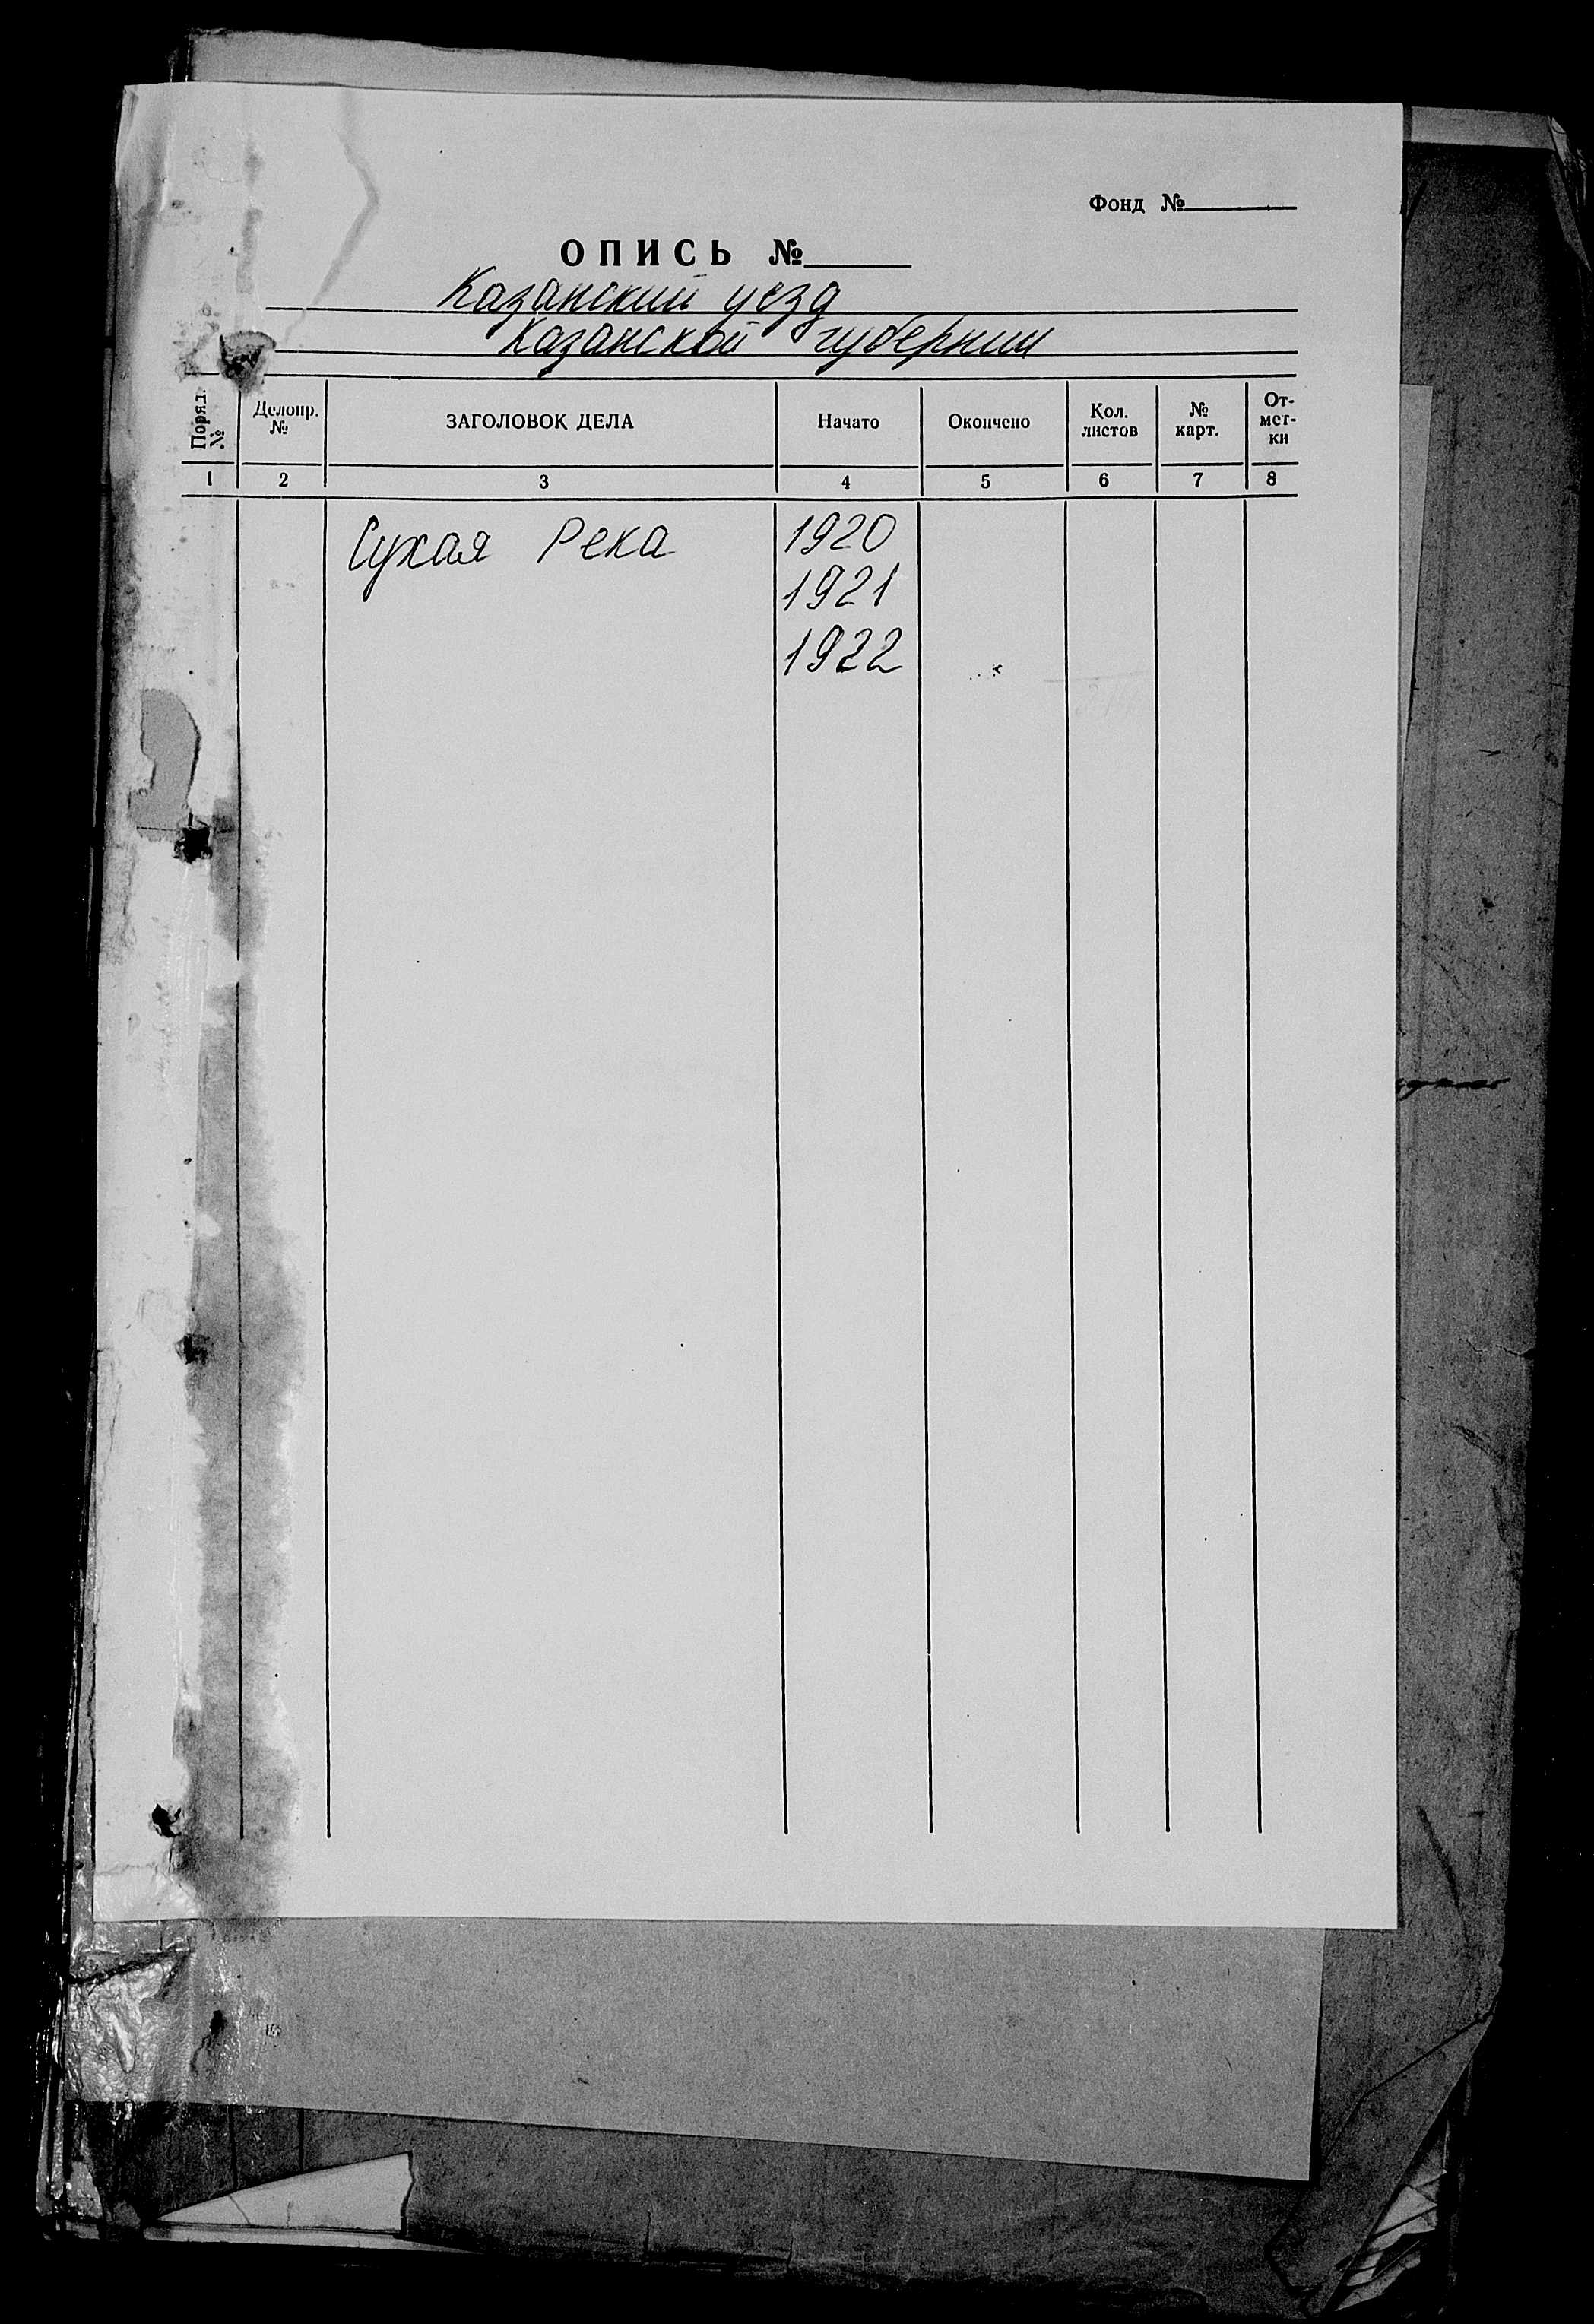 Фонд №
ОПИСЬ №
Казанский уезд
Казанской губернии
Поряд. №
Делопр. №
ЗАГОЛОВОК ДЕЛА
Начато
Окончено
Кол. листов
№ карт.
От-
мет-
ки
1 2 3 4 5 6 7 8
Сухая Река 1920
1921
1922